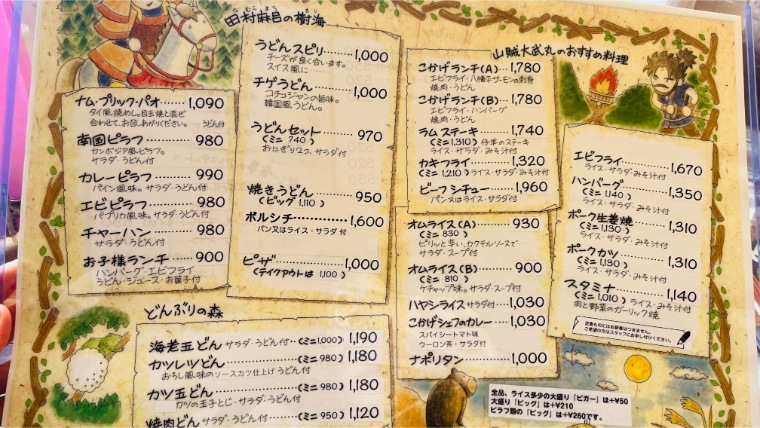 田村麻呂の樹海
ナム・プリック・パオ……1,090
タイ風焼めし。目玉焼と混ぜ
合わせて、お召しあがりください。うどん付
南国ピラフ………… 980
カンボジア風ピラフ。
サラダ・うどん付
カレーピラフ………… 990
パイン風味。サラダ・うどん付
エビピラフ………… 980
パプリカ風味。サラダ・うどん付
チャーハン………… 980
サラダ・うどん付
お子様ランチ…… 900
ハンバーグ・エビフライ
うどん・ジュース・お菓子付
うどんスピリ………1,000
チーズが良く合います。
スイス風に
チゲうどん…………1,000
コチュジャンの旨味。
韓国風うどん。
うどんセット………… 970
(ミニ 740)
おにぎり2コ、サラダ付
焼きうどん………… 950
(ビッグ 1,110)
ボルシチ……………1,600
パン又はライス・サラダ付
ピザ……………1,000
(テイクアウトは 1,100)
どんぶりの森
海老玉どん サラダ・うどん付…(ミニ1,000) 1,190
カツレツどん………(ミニ 980) 1,180
おろし風味のソースカツ仕上げ うどん付
カツ玉どん…………(ミニ 980) 1,180
カツの玉子とじ・サラダ・うどん付
焼肉どん サラダ・うどん付……(ミニ 950) 1,120
山賊大武丸のおすすめ料理
こかげランチ(A)…1,780
エビフライ・八幡平サーモンの刺身
焼肉・うどん
こかげランチ(B)…1,780
エビフライ・ハンバーグ
焼肉・うどん
ラムステーキ………1,740
(ミニ1,310) 仔羊のステーキ
ライス・サラダ・みそ汁付
カキフライ…………1,320
(ミニ 1,210) ライス・サラダ・みそ汁付
ビーフシチュー……1,960
パン又はライス・サラダ付
オムライス(A)…… 930
(ミニ 830)
ピリッと辛い、カクテルソースで
サラダ・スープ付
オムライス(B)…… 900
(ミニ 810)
ケチャップ味。サラダ・スープ付
ハヤシライス サラダ付……1,030
こかげシェフのカレー……1,030
スパイシートマト味
ウーロン茶・サラダ付
ナポリタン…………1,000
エビフライ…………1,670
ライス・サラダ・みそ汁付
ハンバーグ…………1,350
(ミニ 1,140)
ライス・サラダ・みそ汁付
ポーク生姜焼………1,310
(ミニ 1,130)
ライス・サラダ・みそ汁付
ポークカツ…………1,310
(ミニ 1,130)
ライス・サラダ・みそ汁付
スタミナ……………1,140
(ミニ 1,010) ライス・みそ汁付
肉と野菜のガーリック焼
定食ものにはお新香はつきません。
ご希望の方はスタッフにお申し付けください。
全品、ライス多少の大盛り「ビガー」は+¥50
大盛り「ビッグ」は+¥210
ピラフ類の「ビッグ」は+¥260です。